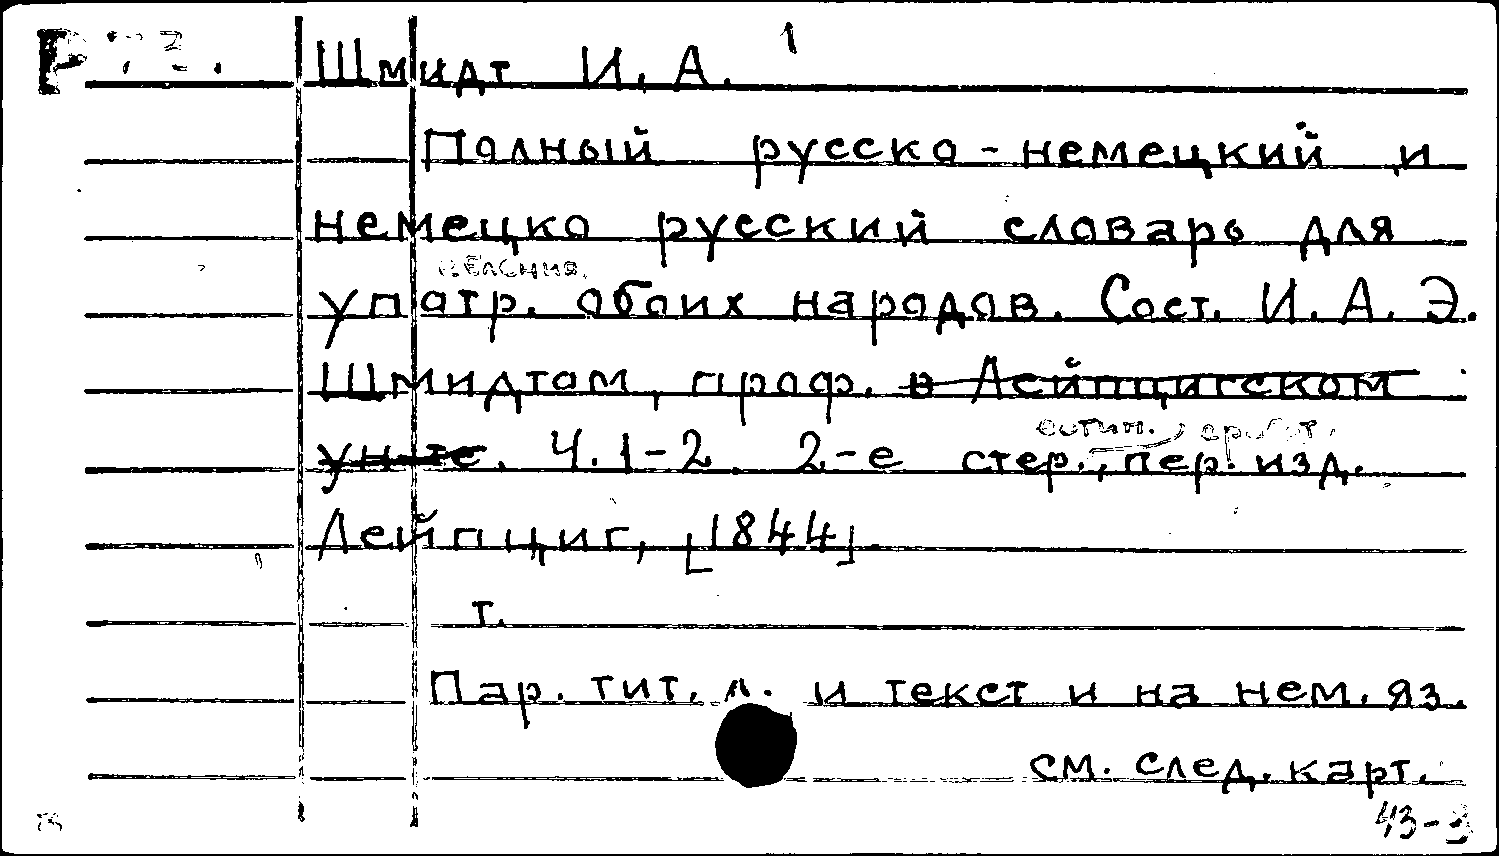 Шмидт И. А. 1
Полный русско-немецкий и
немецко русский словарь для
употр. обоих народов. Сост. И. А. Э.
Шмидтом, проф. в Лейпцигском
ун-те. Ч. 1-2. 2-е стер., пер. изд.
Лейпциг, [1844]
т.
Пар. тит. л. и текст и на нем. яз.
см. след. карт.
43-3